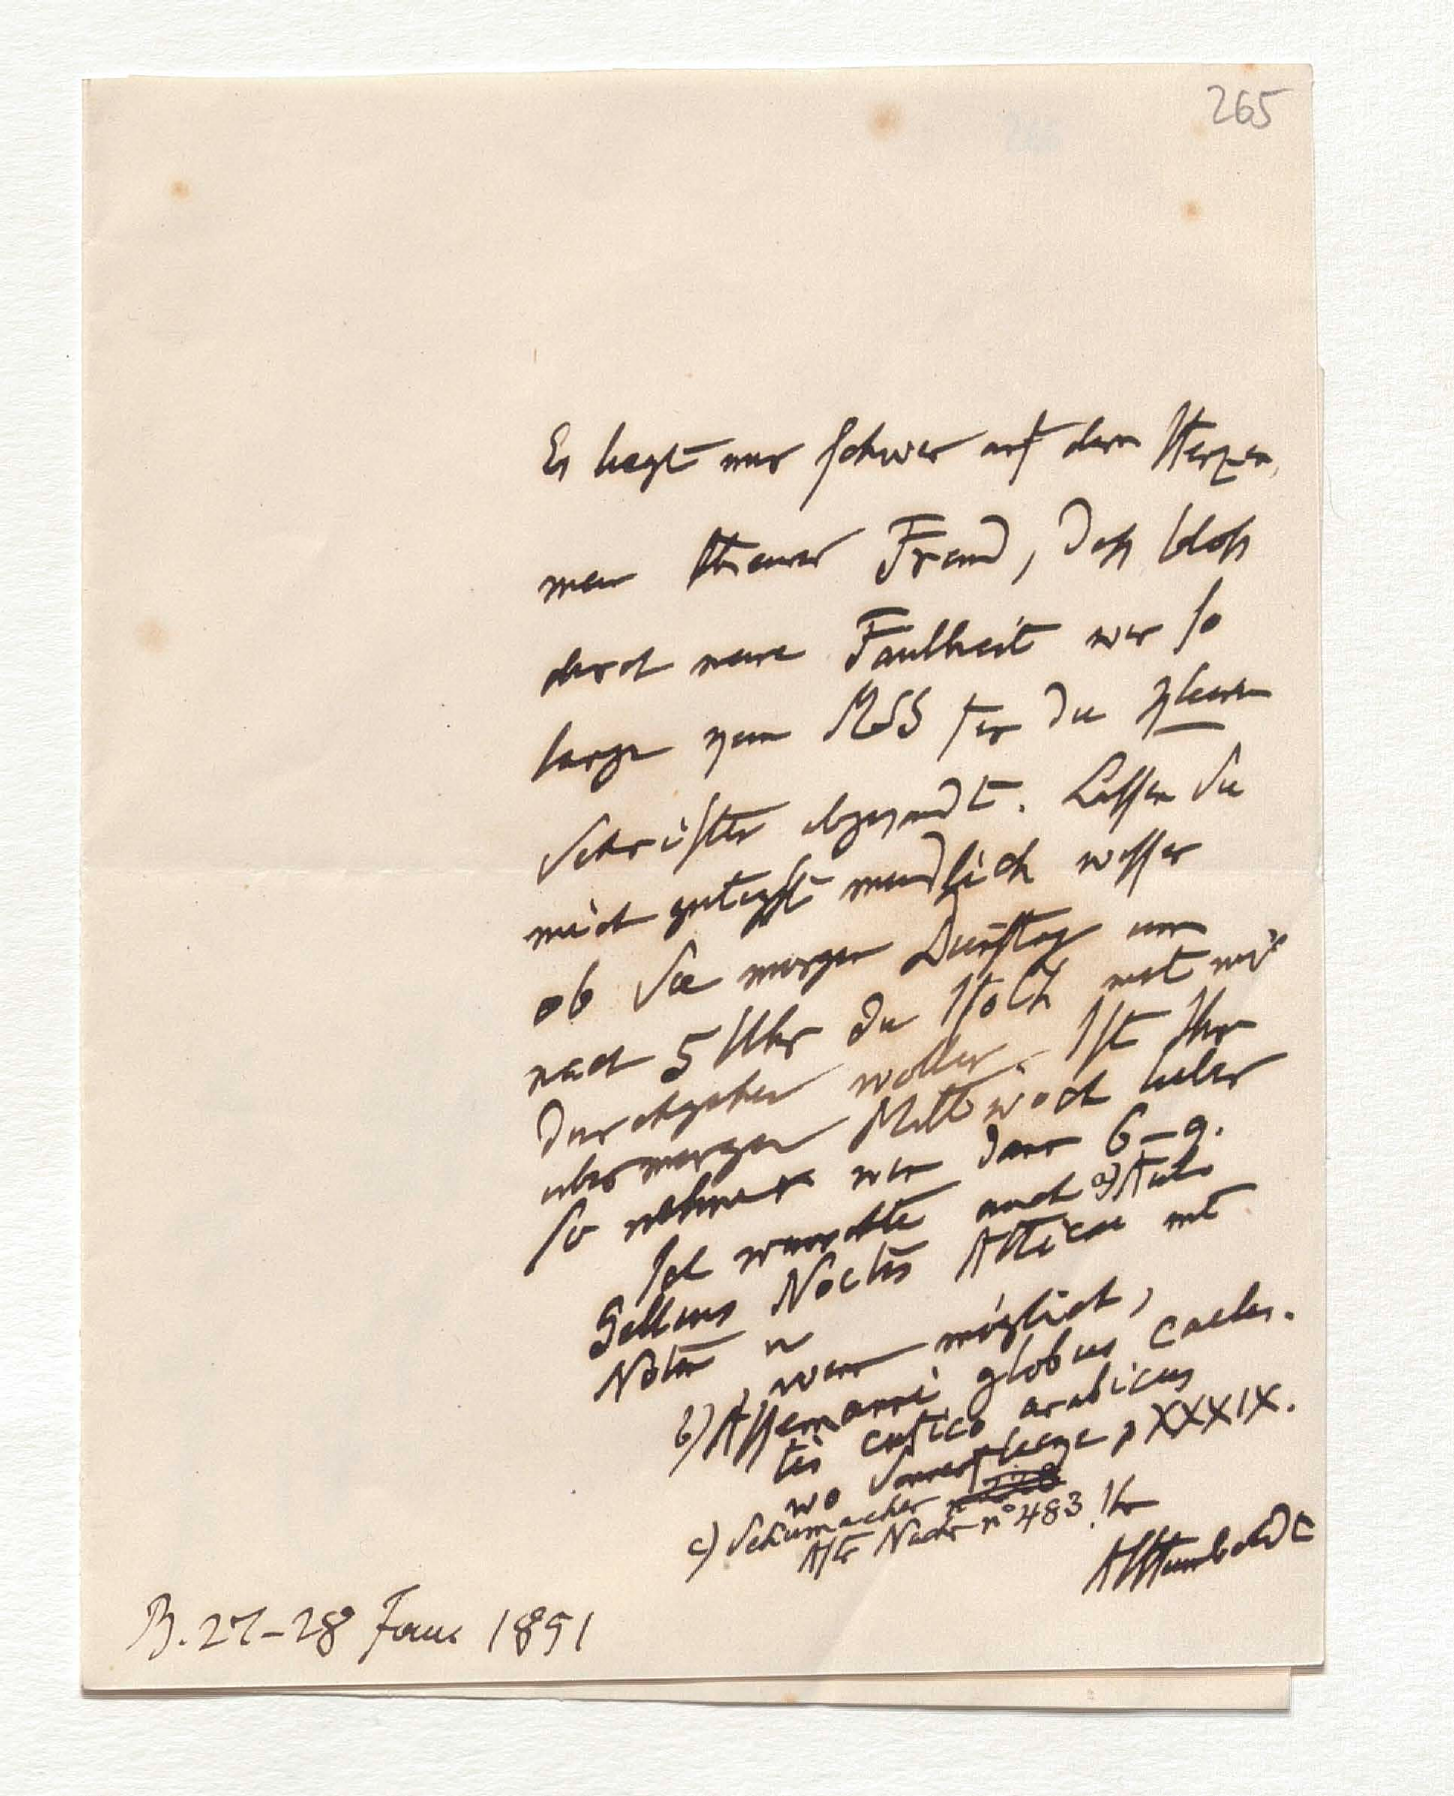 265
Es liegt mir schwer auf dem Herzen,
mein theurer Freund, dass bloss
durch meine Faulheit wir so
lange kein MSS für die kleinen
Schriften abgesandt. Lassen Sie
mich gütigst mündlich wissen
ob Sie morgen Dienstag um
nach 5 Uhr die mit mir
durchgehen wollen. Ist Ihn
übermorgen Mittwoch lieber
so nehmen wir dann 6–9.
Ich wünschte auch a) Aul
Gellius Noctes Atticae mit
Noten u
, wenn möglich,
b) Assemanni globus caeles.
tis cufico arabicus
wo p XXXIX.
c) Schumacher
Astr Nachr n° 483. Ihr
AHumboldt
B. 27–28 Janu 1851